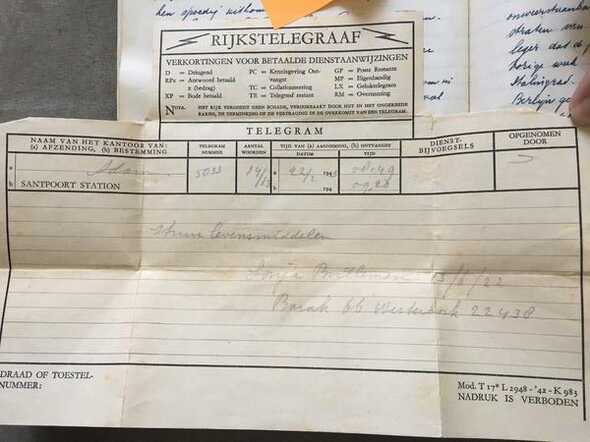 den spoedig
onweerstaanbaar
straten van
leger dat d
horige week
Stalingrad.
Berlijn ge
RIJKSTELEGRAAF
VERKORTINGEN VOOR BETAALDE DIENSTAANWIJZINGEN
D = Dringend PC = Kennisgeving Ontvangst GP = Poste Restante
RPx = Antwoord betaald x (bedrag) TC = Collationneering MP = Eigenhandig
XP = Bode betaald TR = Telegraaf restant LX = Gelukstelegram
RM = Overseining
NOTA. HET RIJK VERGOEDT GEEN SCHADE, VEROORZAAKT DOOR HET IN HET ONGEREEDE
RAKEN, DE VERMINKING OF DE VERTRAGING IN DE OVERKOMST VAN EEN TELEGRAM.
TELEGRAM
NAAM VAN HET KANTOOR VAN: (a) AFZENDING, (b) BESTEMMING TELEGRAM NUMMER AANTAL WOORDEN TIJD VAN (a) AANNEMING, (b) ONTVANGST DATUM TIJD DIENST-BIJVOEGSELS OPGENOMEN DOOR
a 14/13 a 22/2 194
b SANTPOORT STATION b 194 09,20
levensmiddelen
Barak 66 Westerbork 22438
DRAAD OF TOESTEL-
NUMMER:
Mod. T 17* L 2948 - '42 - K 983
NADRUK IS VERBODEN